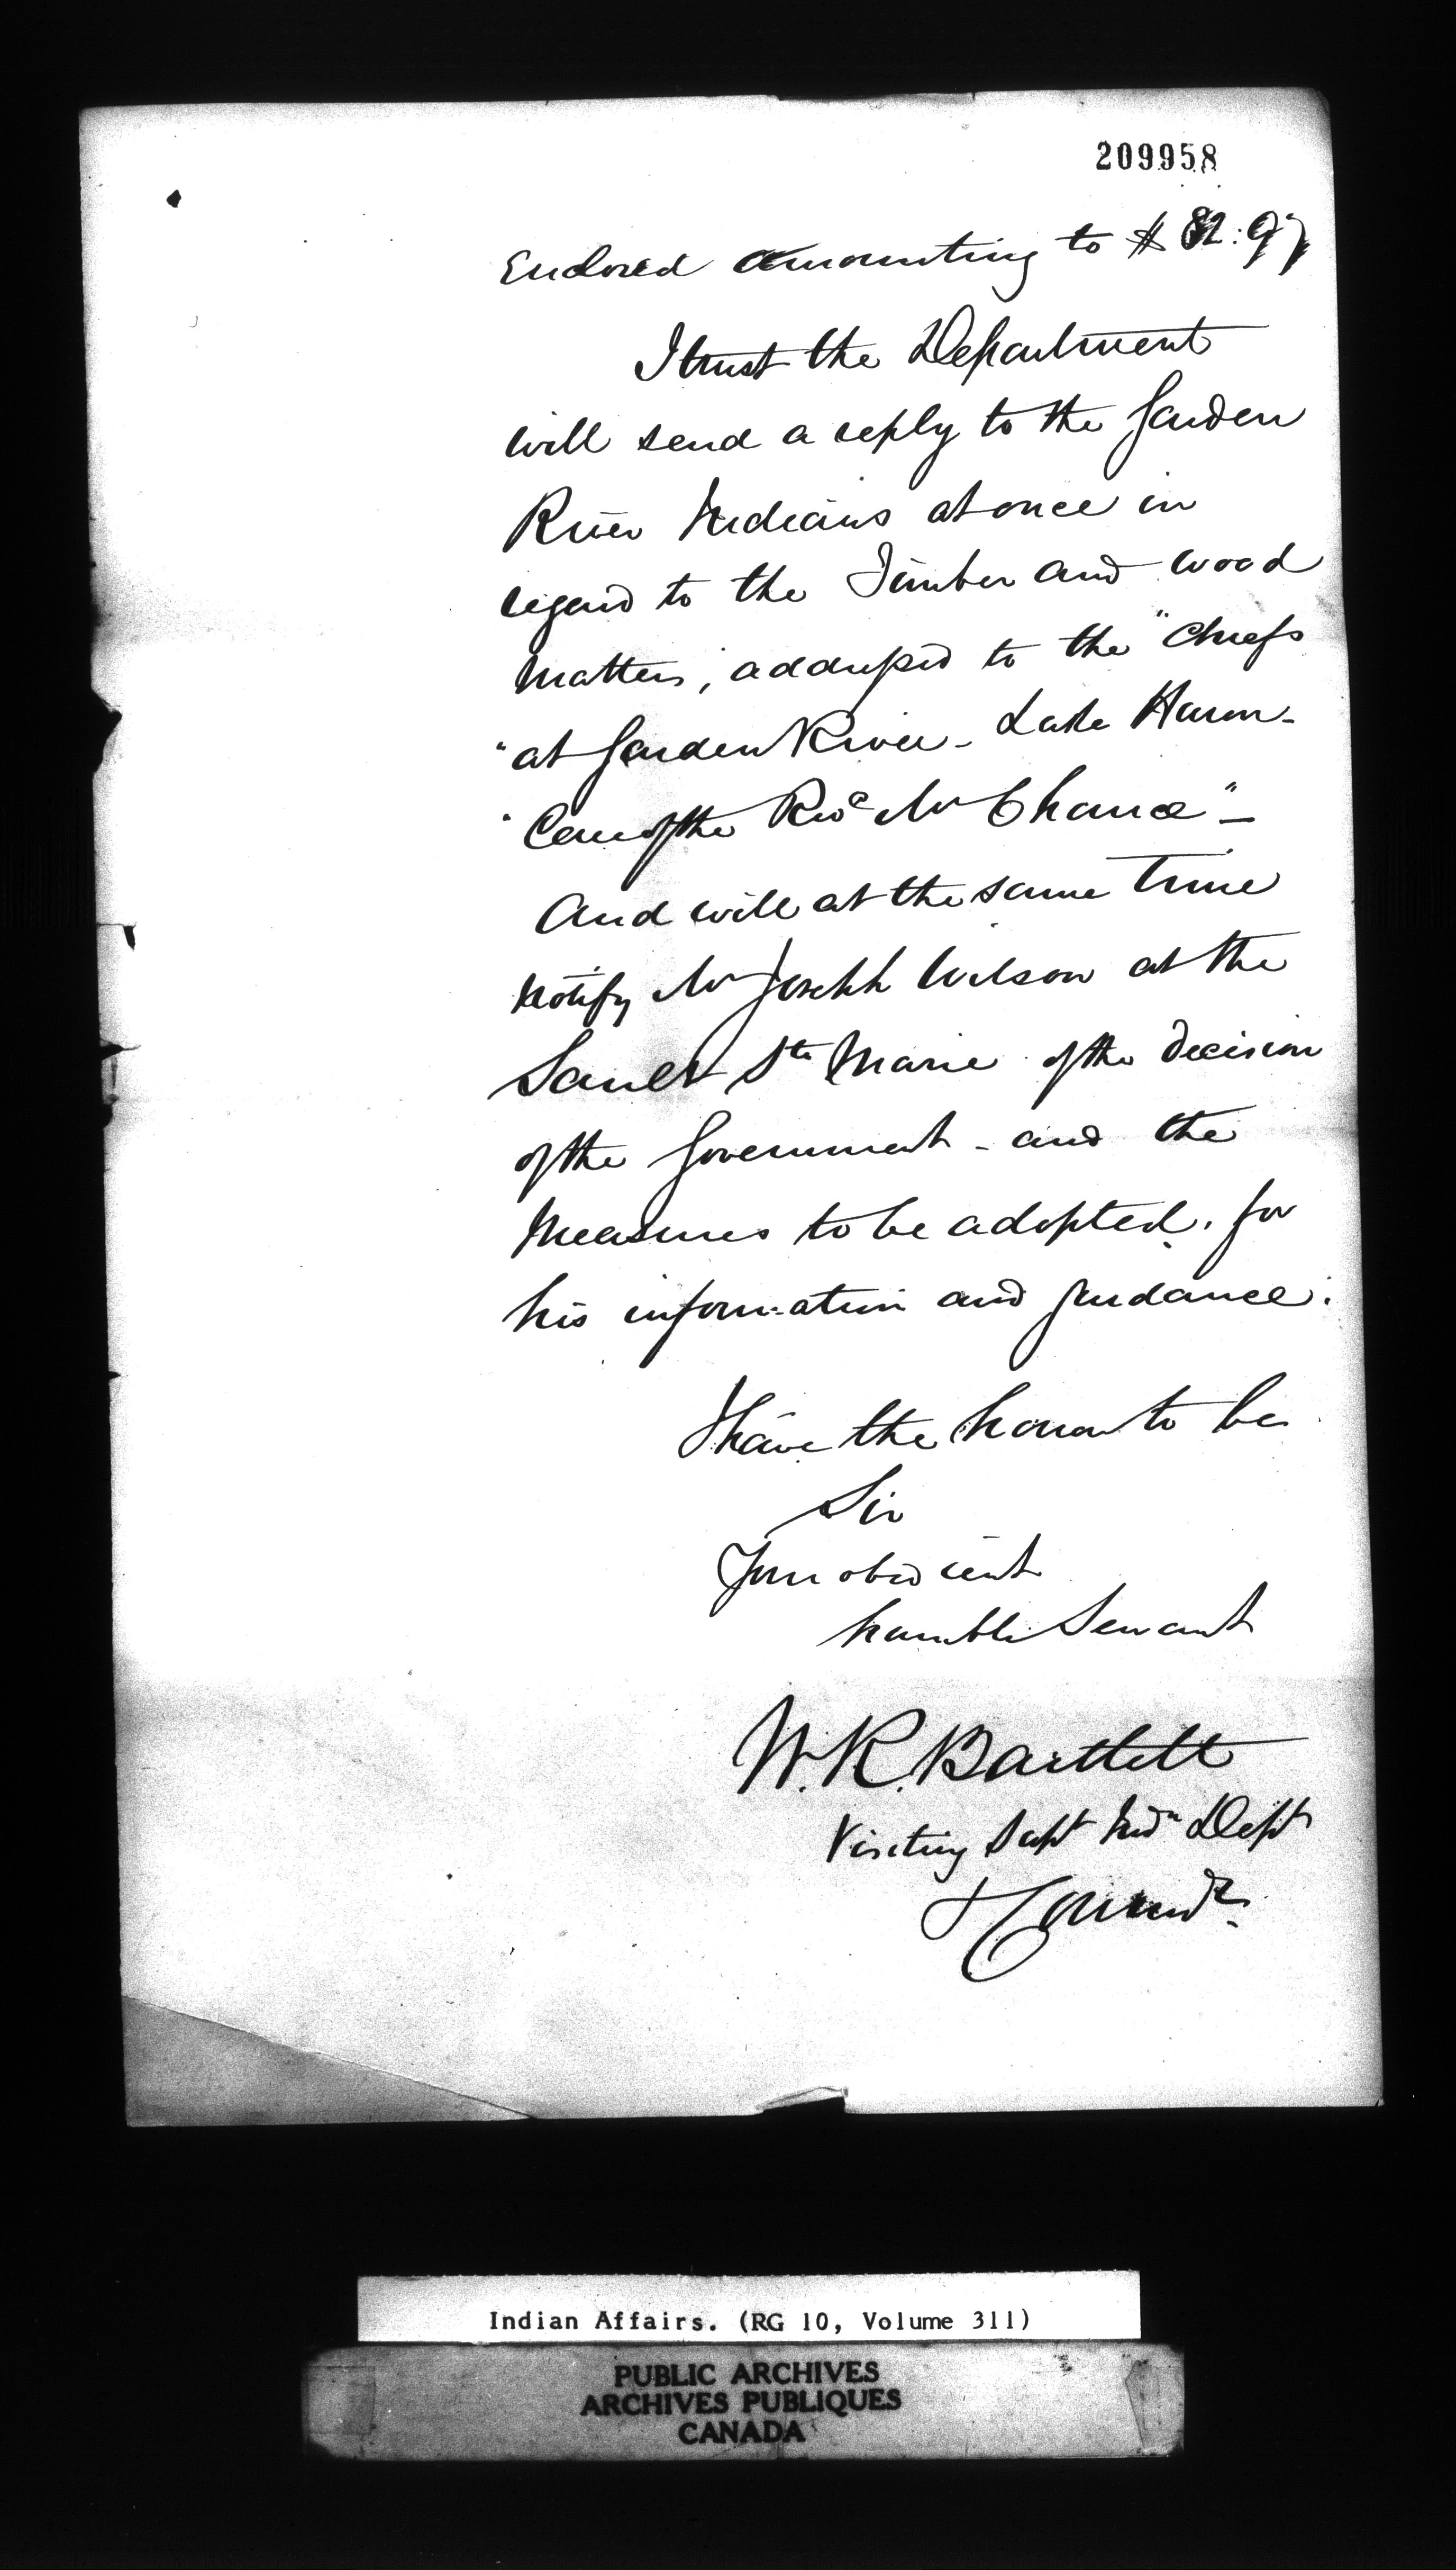 209958
Enclosed amounting to $ 82:97
I trust the Department
will send a reply to the Garden
River Indians at once in
regard to the Timber and wood
matters, addressed to the "Chiefs
"at Garden River - Lake Huron -
"Care of the Revd Mr Chance" -
And will at the same time
notify Mr Joseph Wilson at the
Sault Ste Marie of the decision
of the Government - and the
measures to be adopted. for
his information and guidance.
I have the honor to be
Sir
Your obedient
humble Servant
W. R. Bartlett
Visiting Supt Indn Dept
Indian Affairs. (RG 10, Volume 311)
PUBLIC ARCHIVES
ARCHIVES PUBLIQUES
CANADA